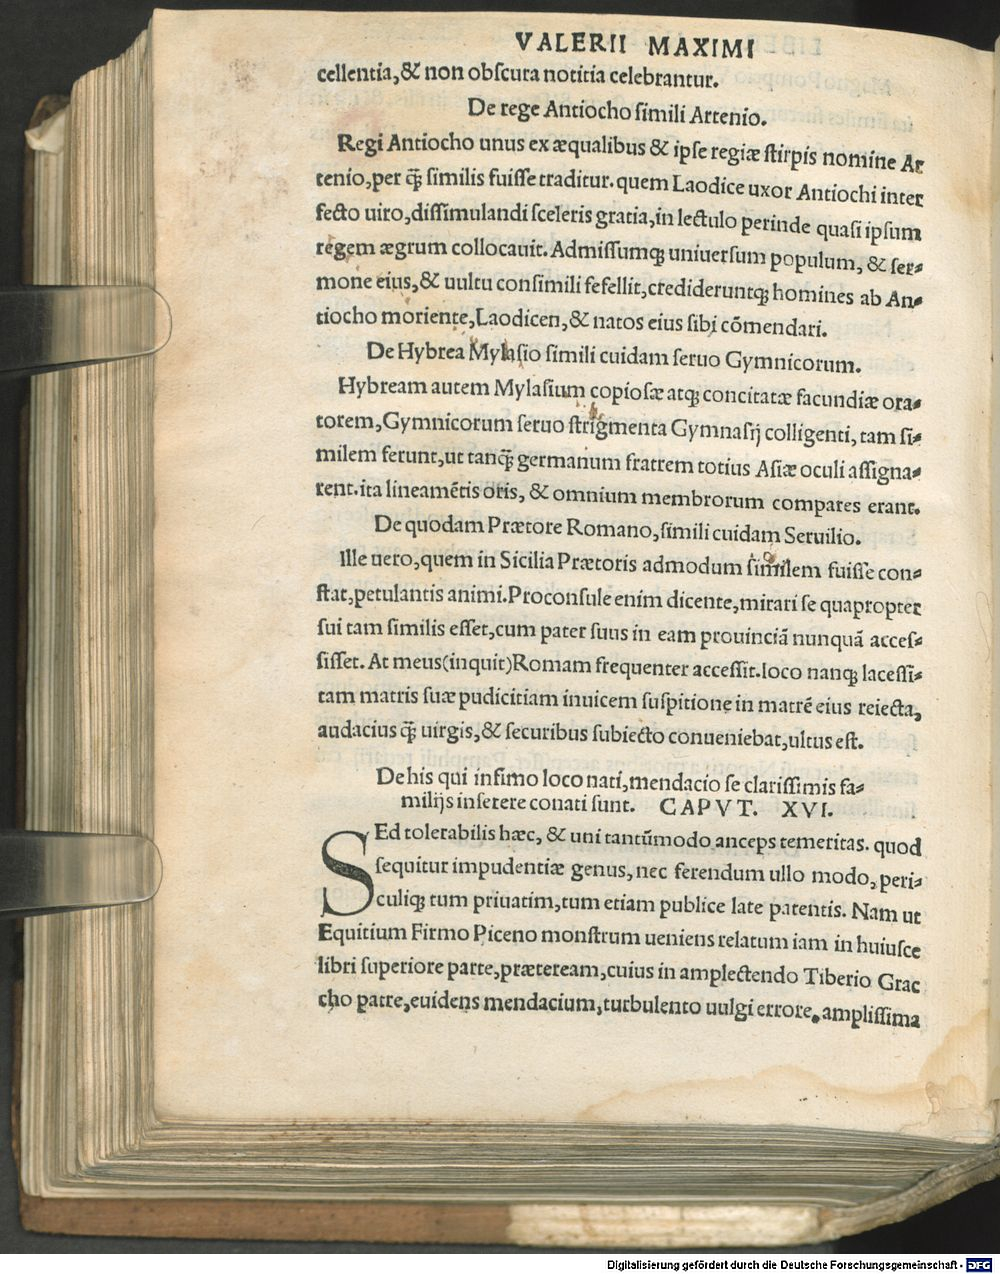 VALERII MAXIMI
cellentia,& non obſcura notitia celebrantur.
De rege Antiocho ſimili Artenio.
Regi Antiocho unus ex æqualibus & ipſe regiæ ſtirpis nomine Ar
tenio,per q̃ ſimilis fuiſſe traditur. quem Laodice uxor Antiochi inter
fecto uiro,diſſimulandi ſceleris gratia,in lectulo perinde quaſi ipſum
regem ægrum collocauit. Admiſſumq; uniuerſum populum, & ſer⸗
mone eius,& uultu conſimili fefellit,credideruntq; homines ab An⸗
tiocho moriente,Laodicen,& natos eius ſibi cōmendari.
De Hybrea Mylaſio ſimili cuidam ſeruo Gymnicorum.
Hybream autem Mylaſium copioſæ atq; concitatæ facundiæ ora⸗
torem,Gymnicorum ſeruo ſtrigmenta Gymnaſij colligenti, tam ſi⸗
milem ferunt,ut tanq̃ germanum fratrem totius Aſiæ oculi aſſigna⸗
rent.ita lineamētis oris, & omnium membrorum compares erant.
De quodam Prætore Romano,ſimili cuidam Seruilio.
Ille uero,quem in Sicilia Prætoris admodum ſimilem fuiſſe con⸗
ſtat,petulantis animi.Proconſule enim dicente,mirari ſe quapropter
ſui tam ſimilis eſſet,cum pater ſuus in eam prouinciā nunquā acceſ⸗
ſiſſet. At meus(inquit)Romam frequenter acceſſit.Ioco nanq; laceſſi⸗
tam matris ſuæ pudicitiam inuicem ſuſpitione in matrē eius reiecta,
audacius q̃ uirgis,& ſecuribus ſubiecto conueniebat,ultus eſt.
De his qui infimo loco nati,mendacio ſe clariſſimis fa⸗
milijs inſerere conati ſunt. CAPVT. XVI.
SEd tolerabilis hæc, & uni tantūmodo anceps temeritas. quod
ſequitur impudentiæ genus, nec ferendum ullo modo, peri⸗
culiq; tum priuatim,tum etiam publice late patentis. Nam ut
Equitium Firmo Piceno monſtrum ueniens relatum iam in huiuſce
libri ſuperiore parte,præteream,cuius in amplectendo Tiberio Grac
cho patre,euidens mendacium,turbulento uulgi errore, ampliſſima
Digitalisierung gefördert durch die Deutsche Forschungsgemeinschaft - DFG